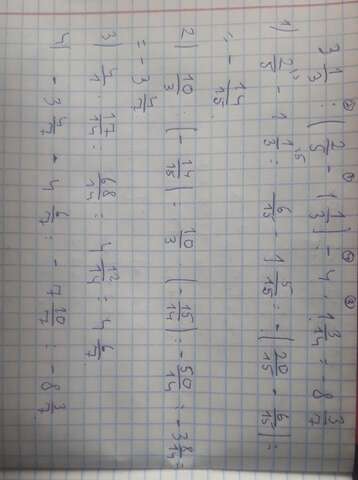 3 1/3 : ( 2/5 - 1 1/3 ) - 4 · 1 3/14 = - 8 3/7
1) 2/5 - 1 1/3 = 6/15 - 1 5/15 = - ( 20/15 - 6/15 ) =
= - 14/15
2) 10/3 : ( - 14/15 ) = 10/3 · ( - 15/14 ) = - 50/14 = - 3 8/14 =
= - 3 4/7
3) 4/1 · 17/14 = 68/14 = 4 12/14 = 4 6/7
4) - 3 4/7 - 4 6/7 = - 7 10/7 = - 8 3/7